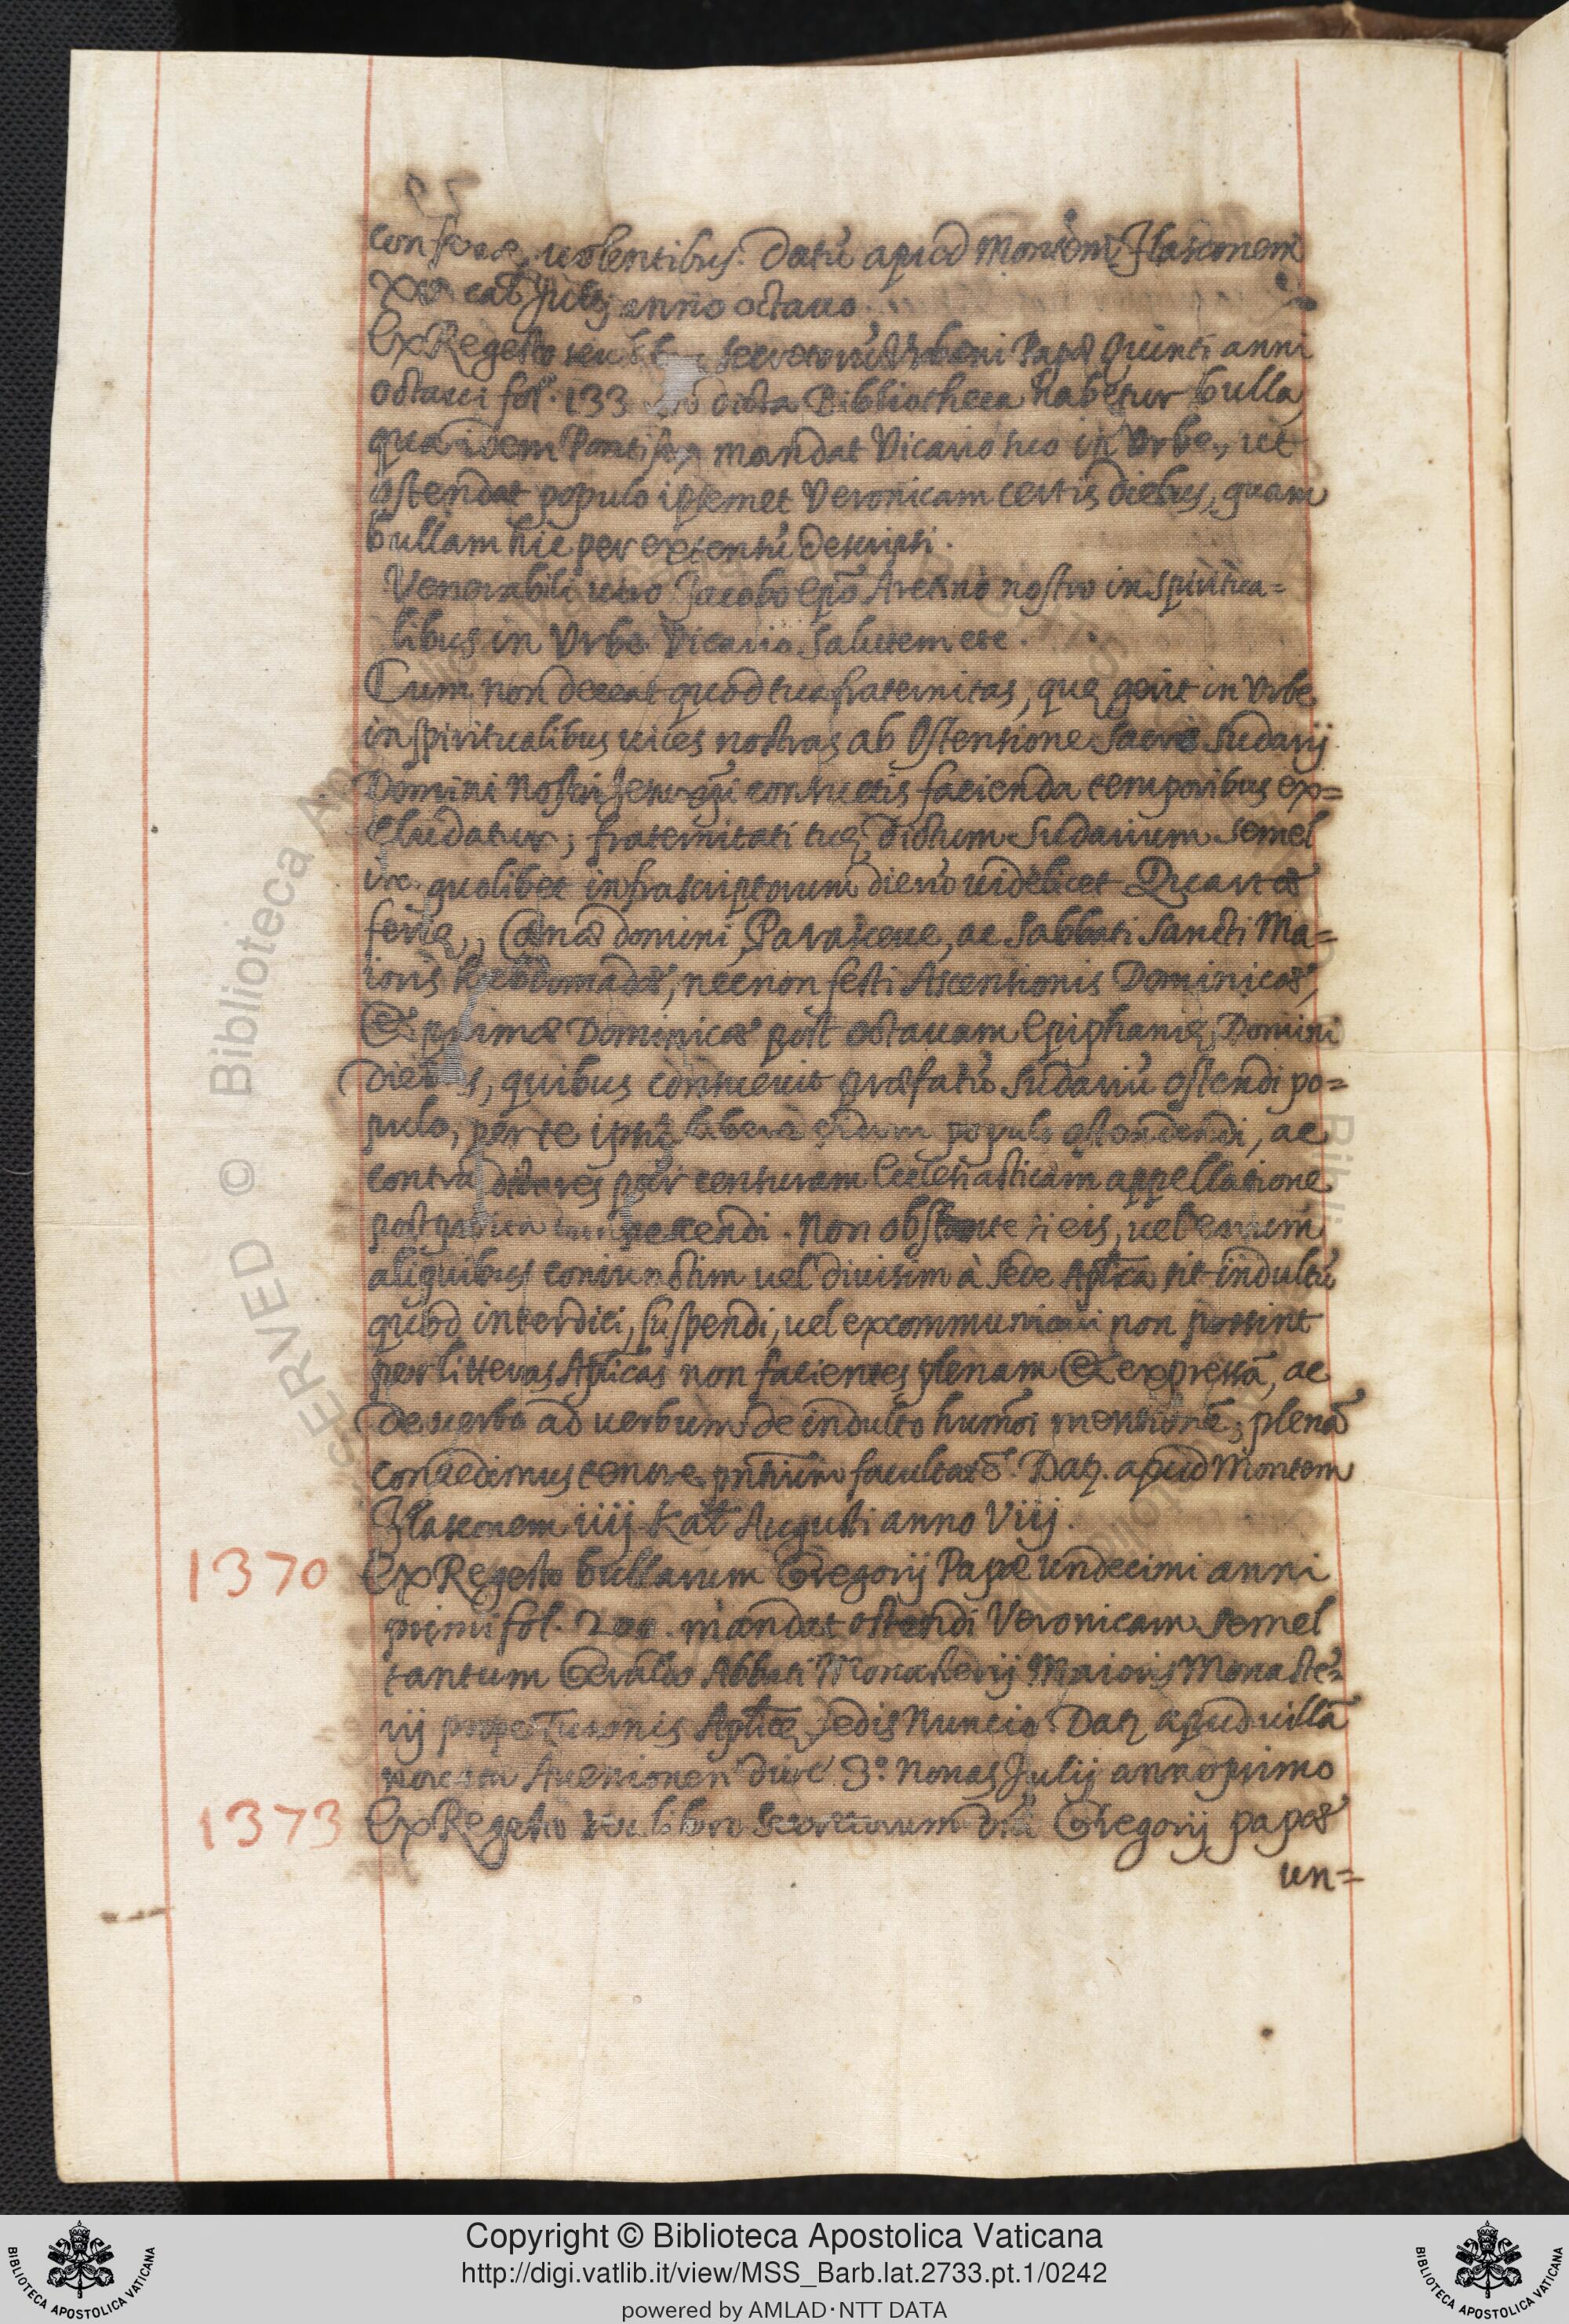 95
conferre uolentibus. Datũ apud Montem Flasconem
XV cal̃ Julij anno octauo.
Ex Regesto seu libro secretorũ Urbani Papæ Quinti anni
octaui fol. 133 dicta Bibliotheca habetur bulla,
qua idem Pontifex mandat Vicario suo in Vrbe, ut
ostendat populo ipsemet Veronicam certis diebus, quam
bullam hic per extensũ descripsi.
Venerabili uiro Jacobo epõ Aretino nostro in spiritua=
libus in Vrbe Vicario salutem etc.
Cum non deceat quod tua fraternitas, quę gerit in Vrbe
in spiritualibus uices nostras ab Ostensione Sacri Sudarij
Domini Nostri Jesu xp̃i consuetis facienda temporibus ex=
cludatur; fraternitati tuę dictum Sudarium semel
in quolibet infrascriptorum dierũ uidelicet Quartæ
ferię, Cænæ domini, Parasceue, ac Sabbati Sancti Ma=
ioris hebdomadæ, necnon festi Ascensionis Dominicæ,
& primæ Dominicæ post octauam Epiphanię Domini
diebus, quibus consueuit præfatũ Sudariũ ostendi po=
pulo, per te ipsũ libere eidem populo ostendendi, ac
contradictores per censuram Ecclesiasticam appellatione
postposita compescendi. Non obstante si eis, uel eorum
aliquibus coniunctim uel diuisim à Sede Aptĩca sit indultũ
quod interdici, suspendi, uel excommunicari non possint
per litteras Aplicas non facientes plenam & expressã, ac
de uerbo ad uerbum de indulto humõi mentionẽ; plenã
concedimus tenore pñtium facultatẽ. Datę apud Montem
Flasconem iiij Kal̃ Augusti anno Viij.
1370 Ex Regesto bullarum Gregorij Papæ Undecimi anni
primi fol. mandat ostendi Veronicam semel
tantum Geraldo Abbati Monasterij Maioris Monaste=
rij prope Turonis Aplicę Sedis Nuncio. Datę apud uillã
nouam Auenionen̄ diœc̃ 3º. Nonas Julij anno primo
1373 Ex Regesto seu libro Secretorum dicti Gregorij papæ
un=
Copyright © Biblioteca Apostolica Vaticana
http://digi.vatlib.it/view/MSS_Barb.lat.2733.pt.1/0242
powered by AMLAD·NTT DATA